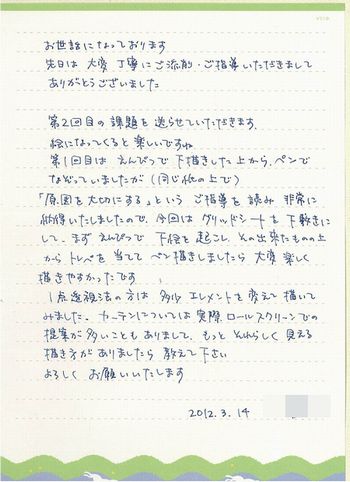 お世話になっております
先日は 大変 丁寧に ご添削・ご指導いただきまして
ありがとうございました
第2回目の 課題を 送らせていただきます.
絵になってくると 楽しいですね
第1回目は えんぴつで 下描きした上から、ペンで
なぞっていましたが (同じ紙の上で)
「原図を大切にする」という ご指導を 読み 非常に
納得いたしましたので、今回は グリッドシートを 下敷きに
して、まず えんぴつで 下絵を 起こし、その出来たものの上
から トレペを 当てて ペン描きしましたら 大変 楽しく
描きやすかったです
1点透視法の方は 多少 エレメントを 変えて 描いて
みました. カーテンについては 実際、ロールスクリーンでの
提案が 多いことも ありまして、もっと それらしく 見える
描き方が ありましたら 教えて 下さい
よろしく お願いいたします
2012.3.14